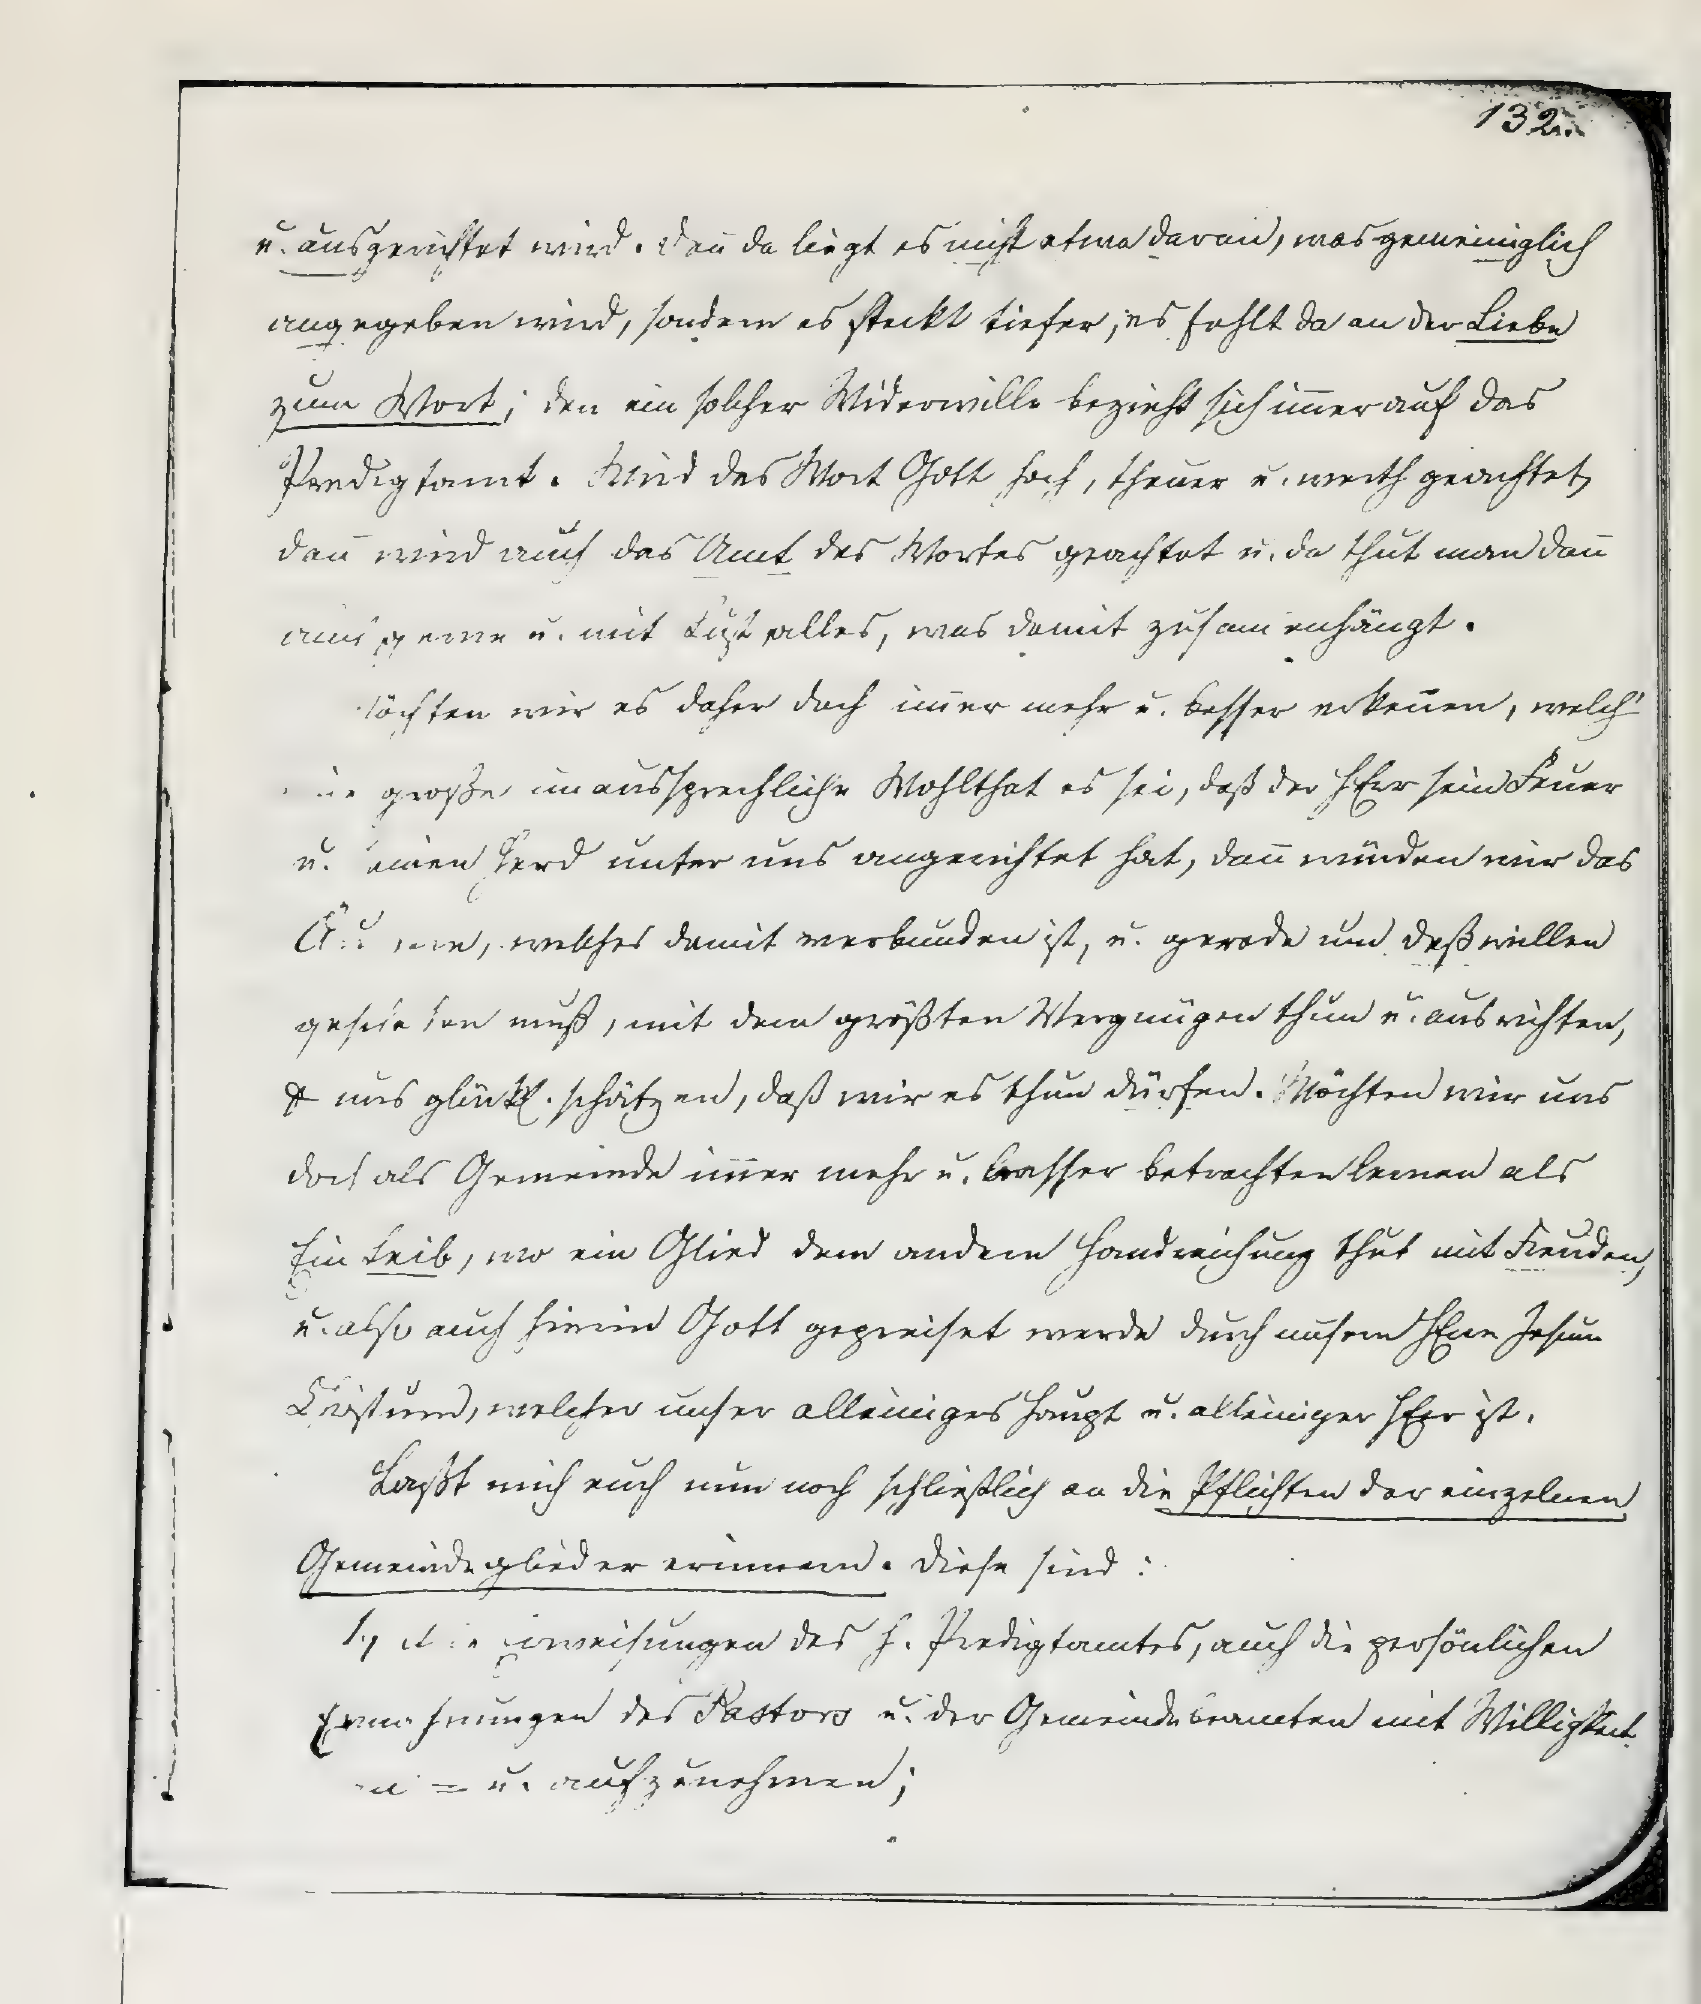 132.
u. ausgerichtet wird. Deñ da liegt es nicht etwa daran, was gemeiniglich
angegeben wird, sondern es steckt tiefer, es fehlt da an der Liebe
zum Wort; den ein solcher Widerwille bezieht sich im̃er auf das
Predigtamt. Wird das Wort Gott hoch, theuer u. werth geachtet,
dañ wird auch das Amt des Wortes geachtet u. da thut man dañ
auch gerne u. mit Lust alles, was damit zusam̃enhängt.
Möchten wir es daher doch im̃er mehr u. besser erkeñen, welch'
große unaussprechliche Wohlthat es sei, daß der HErr sein Feuer
u. seinen Herd unter uns angerichtet hat, dañ würden wir das
welches damit verbunden ist, u. gerade um deßwillen
geschehen muß, mit dem größten Vergnügen thun u. ausrichten,
& uns glückl. schätzen, daß wir es thun dürfen. Möchten wir uns
doch als Gemeinde im̃er mehr u. besser betrachten lernen als
Ein Leib, wo ein Glied dem andern Handreichung thut mit Freuden,
u. also auch hierin Gott gepreiset werde durch unsern HErrn Jesum
Christum, welcher unser alleiniges Haupt u. alleiniger HErr ist.
Laßt mich euch nun noch schließlich an die Pflichten der einzelnen
Gemeindeglieder erinnern. Diese sind:
1, die des h. Predigtamtes, auch die persönlichen
Ermahnungen des Pastors u. der Gemeindebeamten mit Willigkeit
an= u. aufzunehmen;